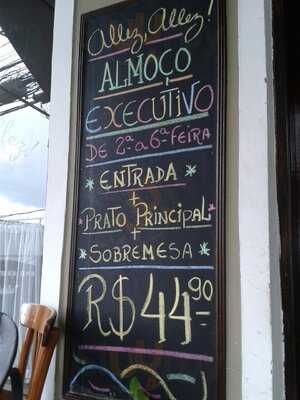 Allez, Allez!
ALMOÇO
EXECUTIVO
DE 2ª a 6ª-FEIRA
* ENTRADA *
+
* PRATO PRINCIPAL *
+
* SOBREMESA *
R$ 44,90